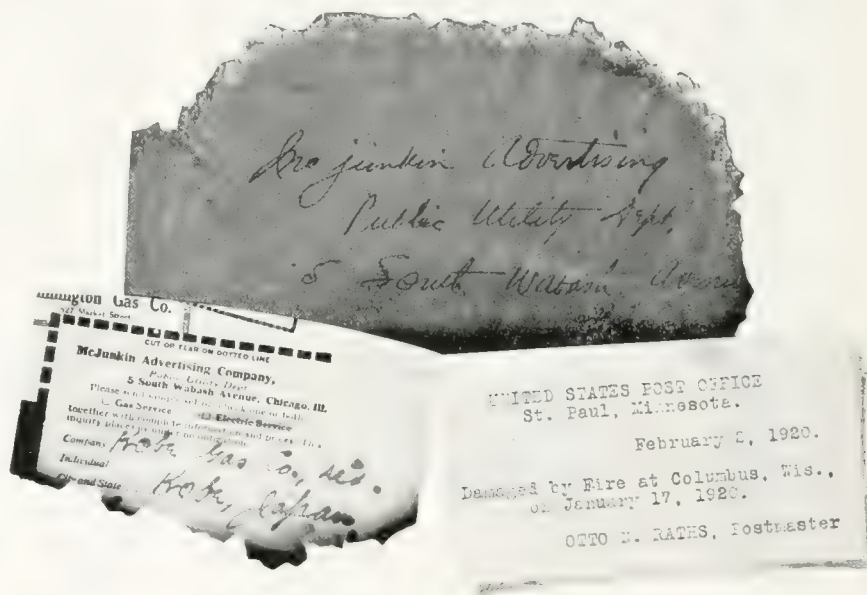 McJunkin Advertising
Public Utility Dept.
5 South Wabash Avenue
mington Gas Co.
527 Market Street
CUT OR TEAR ON DOTTED LINE
McJunkin Advertising Company,
Public Utility Dept.
5 South Wabash Avenue, Chicago, Ill.
Please send
Gas Service Electric Service
together with complete information and prices. This
inquiry places
Company Kobe Gas Co., Ltd.
Individual
City and State Kobe, Japan
UNITED STATES POST OFFICE
St. Paul, Minnesota.
February 2, 1920.
Damaged by Fire at Columbus, Wis.,
on January 17, 1920.
OTTO N. RATHS, Postmaster